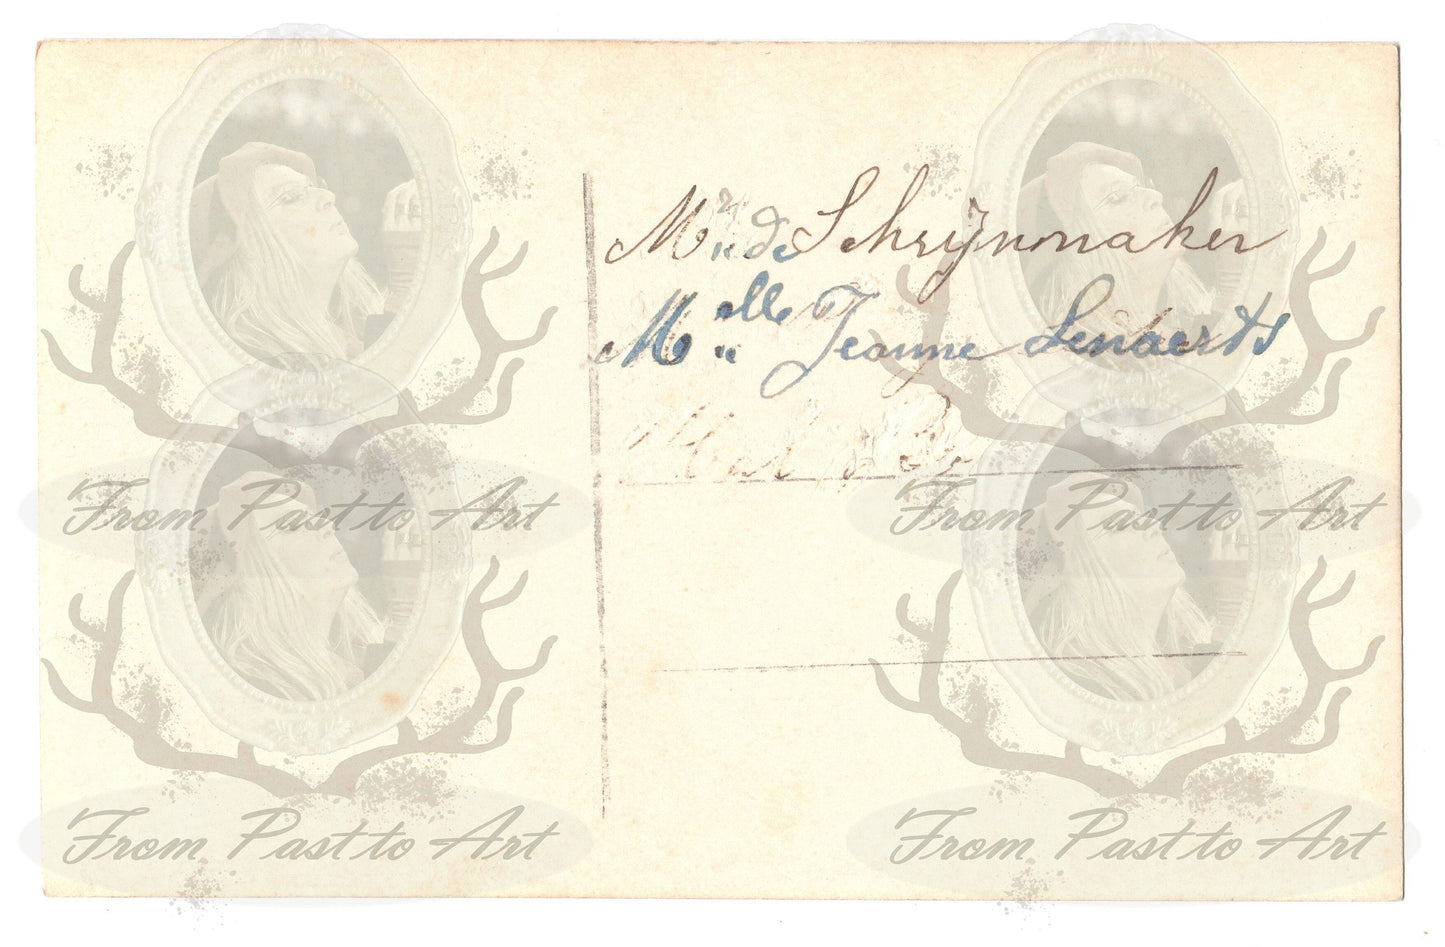 Mr de Schrynmaker
Melle Jeanne Lenaerts
From Past to Art From Past to Art
From Past to Art From Past to Art